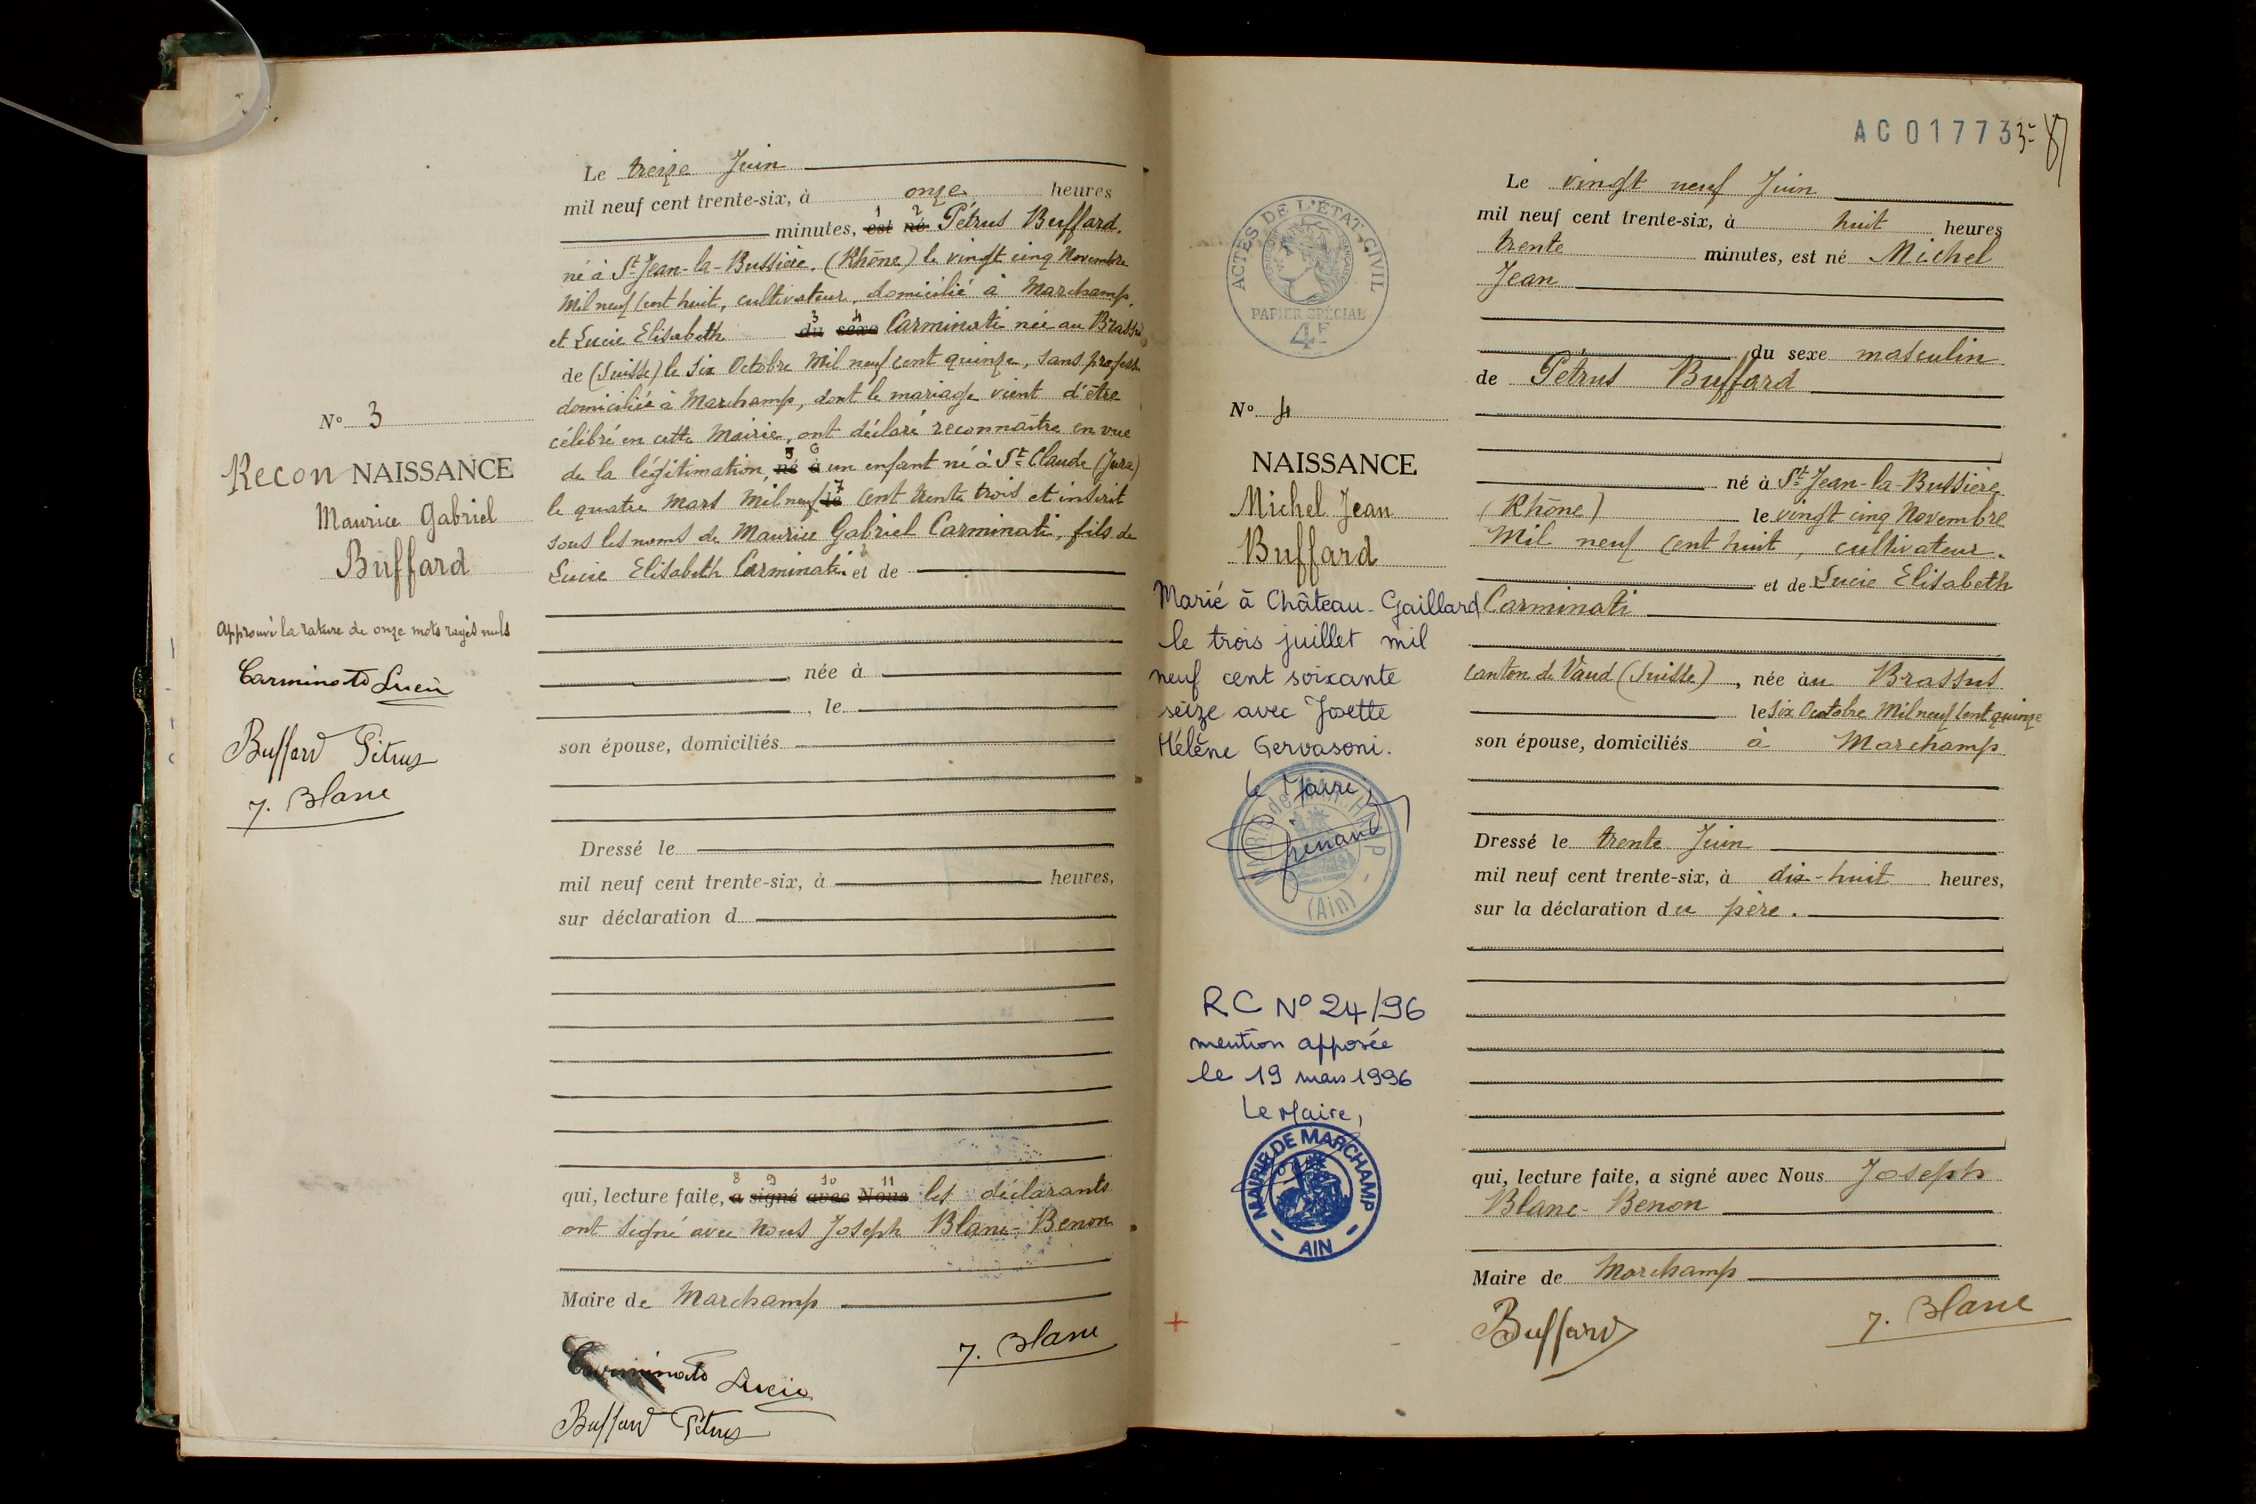 Le treize Juin
mil neuf cent trente-six, à onze heures
minutes, est né Pétrus Buffard.
né à St Jean-la-Bussière. (Rhône) le vingt cinq Novembre
Mil neuf cent huit, cultivateur, domicilié à Marchamp.
et Lucie Elisabeth du sexe Carminati née au Brassus
de (Suisse) le six Octobre Mil neuf cent quinze, sans profess
domiciliée à Marchamp, dont le mariage vient d'être
célébré en cette Mairie, ont déclaré reconnaître en vue
de la légitimation, né à un enfant né à St Claude (Jura)
le quatre Mars Mil neuf le cent trente trois et inscrit
sous les noms de Maurice Gabriel Carminati, fils de
Lucie Elisabeth Carminati et de
, née à
, le
son épouse, domiciliés
Dressé le
mil neuf cent trente-six, à heures,
sur déclaration d
qui, lecture faite, a signé avec Nous les déclarants
ont signé avec nous Joseph Blanc-Benon
Maire de Marchamp
J. Blanc
Carminati Lucie
Buffard Pétrus
No 3
Recon NAISSANCE
Maurice Gabriel
Buffard
Approuvé la rature de onze mots rayés nuls
Carminati Lucie
Buffard Pétrus
J. Blanc
AC 01773
ACTES DE L'ÉTAT CIVIL
PAPIER SPÉCIAL
4F
No 4
NAISSANCE
Michel Jean
Buffard
Marié à Château-Gaillard
le trois juillet mil
neuf cent soixante
seize avec Josette
Hélène Gervasoni.
le Maire,
(Ain)
RC No 24/96
mention apposée
le 19 mars 1996
Le Maire,
MAIRIE DE MARCHAMP
- AIN -
Le vingt neuf Juin
mil neuf cent trente-six, à huit heures
trente minutes, est né Michel
Jean
du sexe masculin
de Pétrus Buffard
né à St Jean-la-Bussière
(Rhône) le vingt cinq Novembre
Mil neuf cent huit, cultivateur.
et de Lucie Elisabeth
Carminati
canton de Vaud (Suisse), née au Brassus
le six Octobre Mil neuf cent quinze
son épouse, domiciliés à Marchamp
Dressé le trente Juin
mil neuf cent trente-six, à dix-huit heures,
sur la déclaration du père.
qui, lecture faite, a signé avec Nous Joseph
Blanc-Benon
Maire de Marchamp
Buffard
J. Blanc